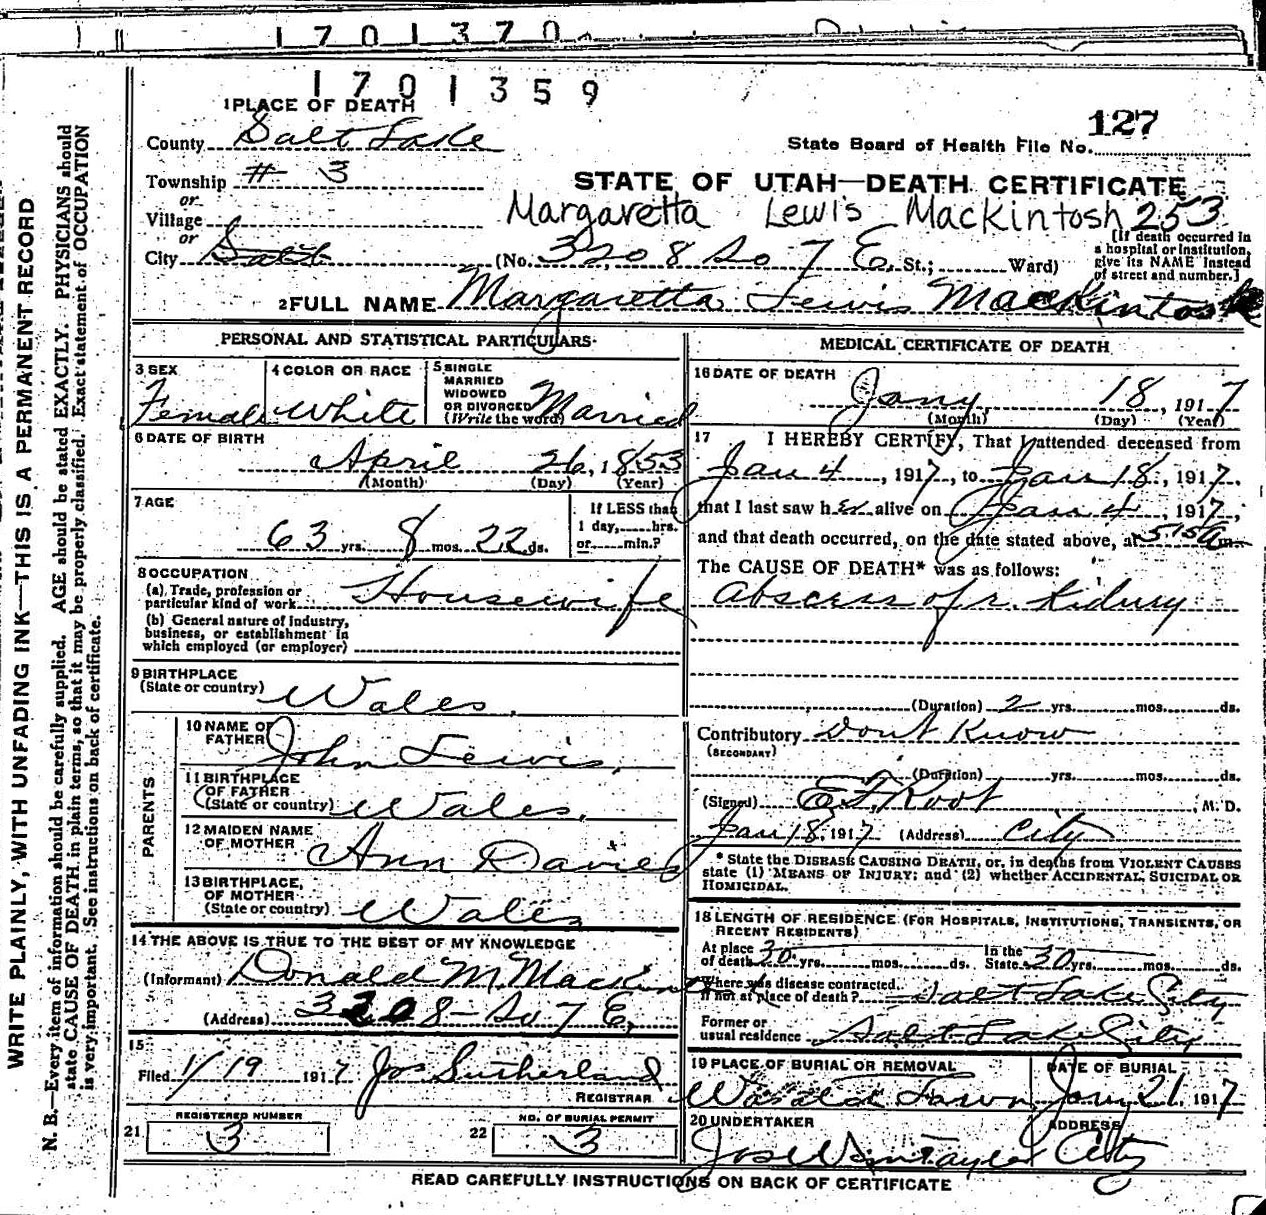 1701370
1701359
127
1 PLACE OF DEATH
County Salt Lake
State Board of Health File No.
Township # 3
or
STATE OF UTAH—DEATH CERTIFICATE
Village
Margaretta Lewis Mackintosh 253
or
City Salt (No. 3208 So 7 E. St.; Ward)
[If death occurred in
a hospital or institution,
give its NAME instead
of street and number.]
2 FULL NAME Margaretta Lewis Mackintosh
PERSONAL AND STATISTICAL PARTICULARS
3 SEX
Female
4 COLOR OR RACE
White
5 SINGLE
MARRIED
WIDOWED
OR DIVORCED
(Write the word) Married
6 DATE OF BIRTH
April 26, 1853
(Month) (Day) (Year)
7 AGE
63 yrs. 8 mos. 22 ds.
If LESS than
1 day, hrs.
or min.?
8 OCCUPATION
(a) Trade, profession or
particular kind of work Housewife
(b) General nature of industry,
business, or establishment in
which employed (or employer)
9 BIRTHPLACE
(State or country) Wales.
PARENTS
10 NAME OF
FATHER John Lewis,
11 BIRTHPLACE
OF FATHER
(State or country) Wales.
12 MAIDEN NAME
OF MOTHER Ann Davies
13 BIRTHPLACE,
OF MOTHER
(State or country) Wales
14 THE ABOVE IS TRUE TO THE BEST OF MY KNOWLEDGE
(Informant) Donald M. Mackin
(Address) 3208- So 7 E,
15
Filed 1/19 1917 Jos Sutherland
REGISTRAR
REGISTERED NUMBER
21 3
NO. OF BURIAL PERMIT
22 3
MEDICAL CERTIFICATE OF DEATH
16 DATE OF DEATH
Jany 18, 1917
(Month) (Day) (Year)
17 I HEREBY CERTIFY, That I attended deceased from
Jan 4, 1917, to Jan 18, 1917.
that I last saw her alive on Jan 4, 1917,
and that death occurred, on the date stated above, at 5:15a m.
The CAUSE OF DEATH* was as follows:
Abscess of r. Kidney
(Duration) 2 yrs. mos. ds.
Contributory Dont Know
(SECONDARY)
(Duration) yrs. mos. ds.
(Signed) E F. Root M. D.
Jan 18. 1917 (Address) City
* State the DISEASE CAUSING DEATH, or, in deaths from VIOLENT CAUSES
state (1) MEANS OF INJURY; and (2) whether ACCIDENTAL, SUICIDAL OR
HOMICIDAL.
18 LENGTH OF RESIDENCE (FOR HOSPITALS, INSTITUTIONS, TRANSIENTS, OR
RECENT RESIDENTS)
At place
of death 30 yrs. mos. ds.
In the
State 30 yrs. mos. ds.
Where was disease contracted,
if not at place of death? Salt Lake City
Former or
usual residence Salt Lake City
19 PLACE OF BURIAL OR REMOVAL
Lawn
DATE OF BURIAL
Jany 21, 1917
20 UNDERTAKER
Jos Wm Taylor
ADDRESS
City
READ CAREFULLY INSTRUCTIONS ON BACK OF CERTIFICATE
WRITE PLAINLY, WITH UNFADING INK—THIS IS A PERMANENT RECORD
N. B.—Every item of information should be carefully supplied. AGE should be stated EXACTLY. PHYSICIANS should
state CAUSE OF DEATH in plain terms, so that it may be properly classified. Exact statement of OCCUPATION
is very important. See instructions on back of certificate.